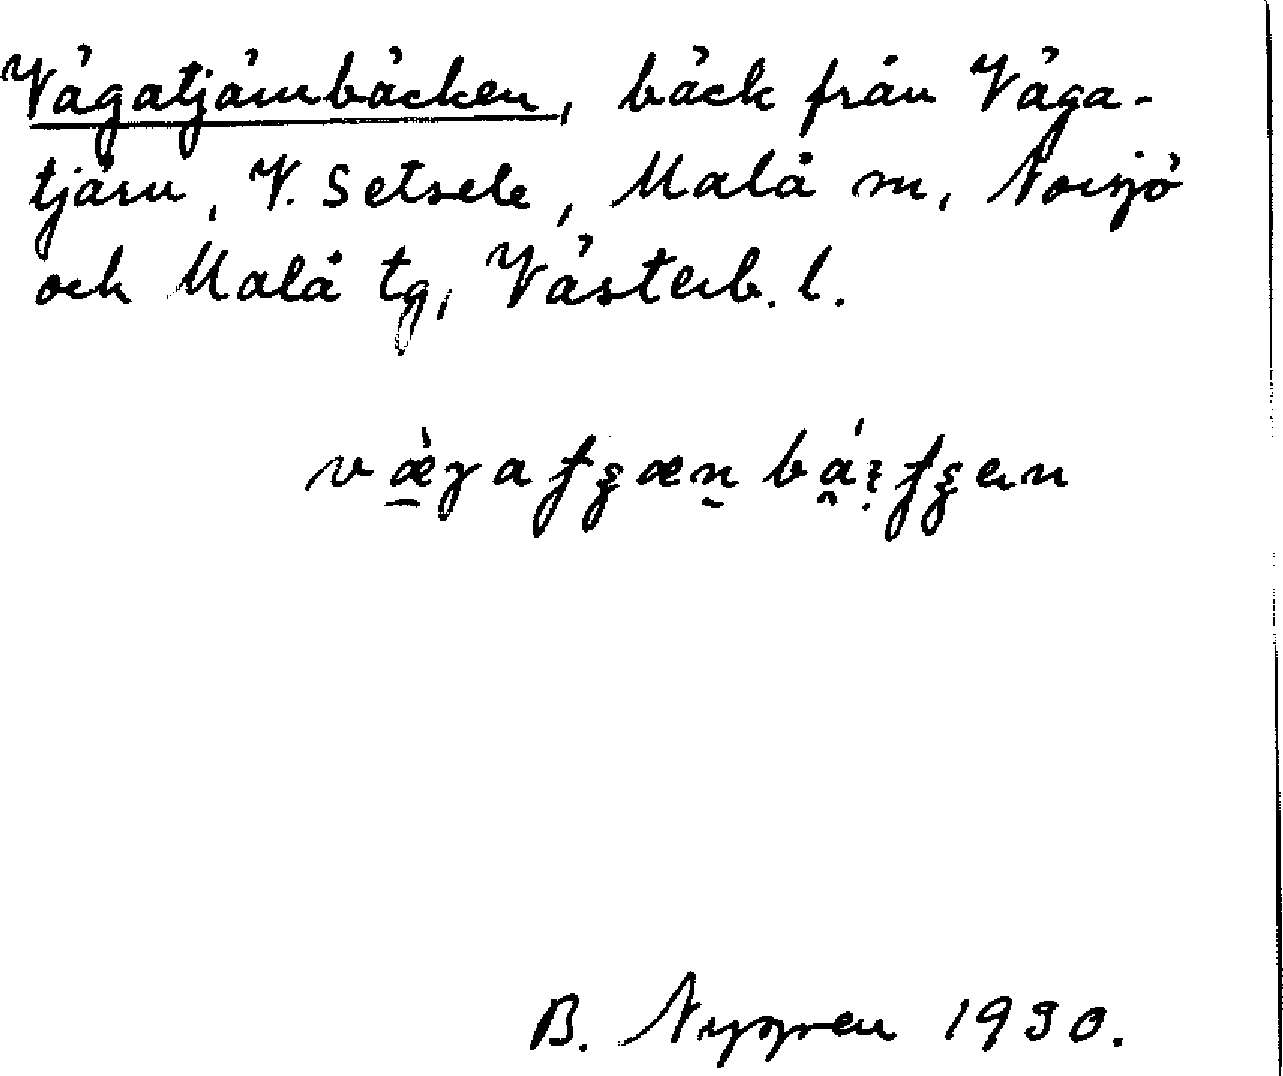 Vägatjärnbäcken, bäck från Väga-
tjärn, V. Setsele, Malå m, Norsjö
och Malå tg, Västerb. l.
B. Nygren 1930.